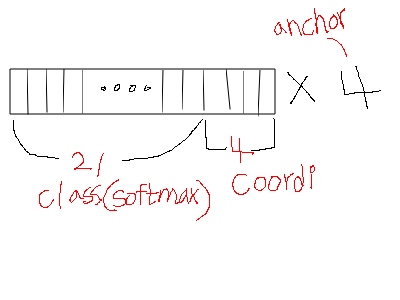 anchor
x 4
21
4
class(softmax)
coordi